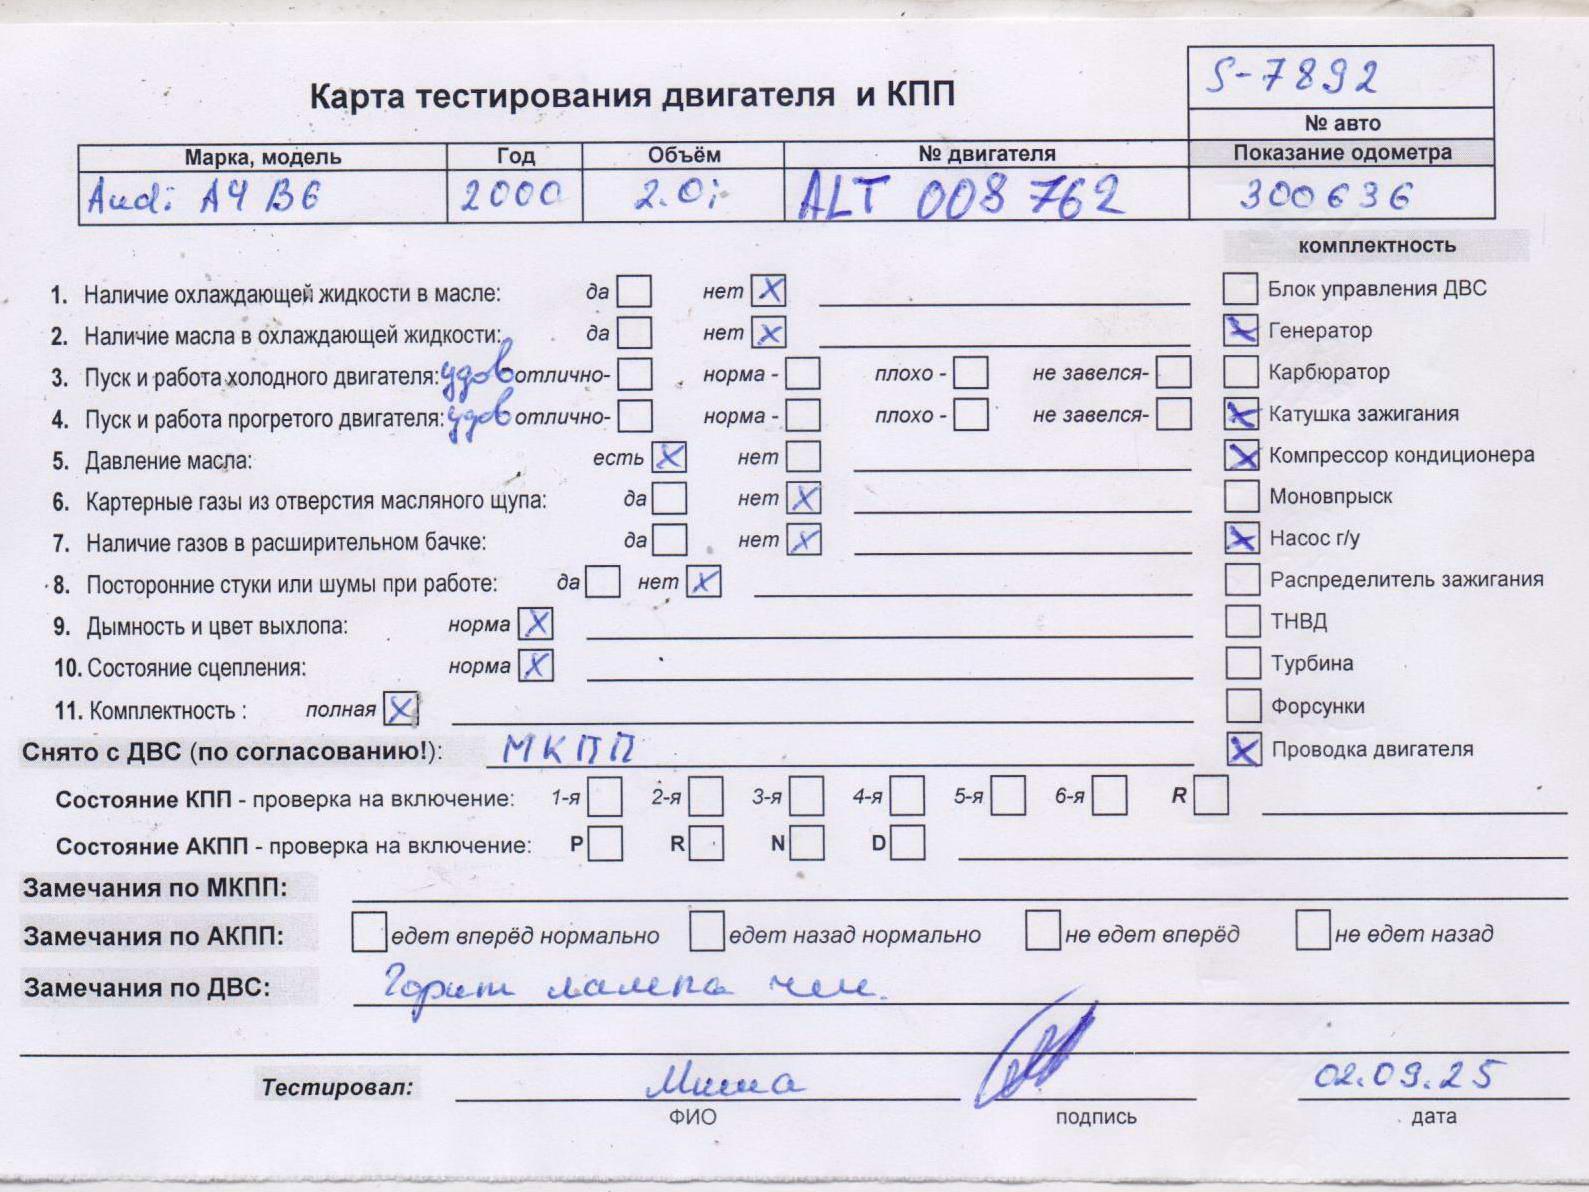 S-7892
Карта тестирования двигателя и КПП
№ авто
Марка, модель Год Объём № двигателя Показание одометра
Audi A4 B6 2000 2.0i ALT 008 762 300636
комплектность
1. Наличие охлаждающей жидкости в масле: да нет X Блок управления ДВС
2. Наличие масла в охлаждающей жидкости: да нет X X Генератор
3. Пуск и работа холодного двигателя: удов отлично- норма - плохо - не завелся- Карбюратор
4. Пуск и работа прогретого двигателя: удов отлично- норма - плохо - не завелся- X Катушка зажигания
5. Давление масла: есть X нет X Компрессор кондиционера
6. Картерные газы из отверстия масляного щупа: да нет X Моновпрыск
7. Наличие газов в расширительном бачке: да нет X X Насос г/у
8. Посторонние стуки или шумы при работе: да нет X Распределитель зажигания
9. Дымность и цвет выхлопа: норма X ТНВД
10. Состояние сцепления: норма X Турбина
11. Комплектность : полная X Форсунки
Снято с ДВС (по согласованию!): МКПП X Проводка двигателя
Состояние КПП - проверка на включение: 1-я 2-я 3-я 4-я 5-я 6-я R
Состояние АКПП - проверка на включение: P R N D
Замечания по МКПП:
Замечания по АКПП: едет вперёд нормально едет назад нормально не едет вперёд не едет назад
Замечания по ДВС: Горит лампа чек.
Тестировал: Миша 02.09.25
ФИО подпись дата